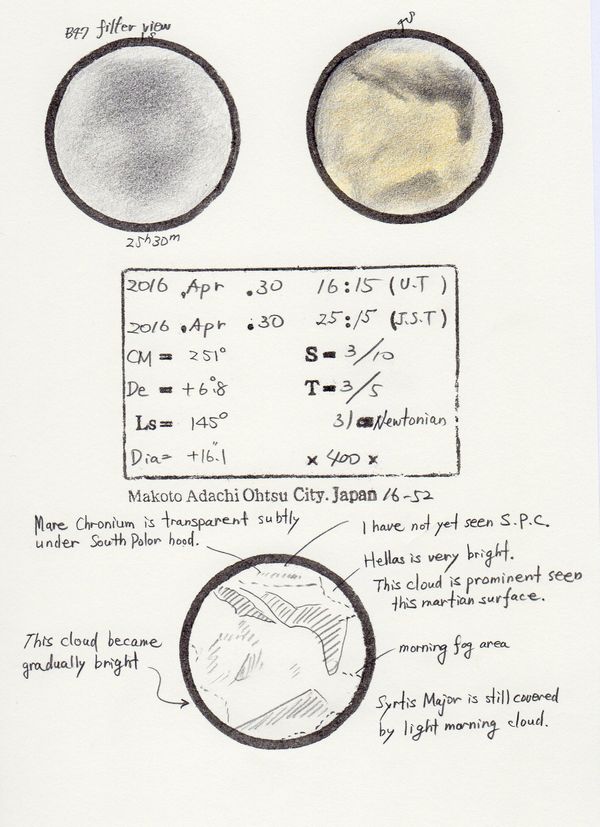 B47 filter view
25h30m
2016 .Apr .30 16:15 (U.T )
2016 .Apr .30 25:15 (J.S.T)
CM = 251° S = 3/10
De = +6°.8 T = 3/5
Ls = 145° 31 cm Newtonian
Dia= +16".1 × 400 ×
Makoto Adachi Ohtsu City. Japan 16-52
Mare Chronium is transparent subtly
under South Polor hood.
I have not yet seen S.P.C.
Hellas is very bright.
This cloud is prominent seen
this martian surface.
This cloud became
gradually bright
morning fog area
Syrtis Major is still covered
by light morning cloud.